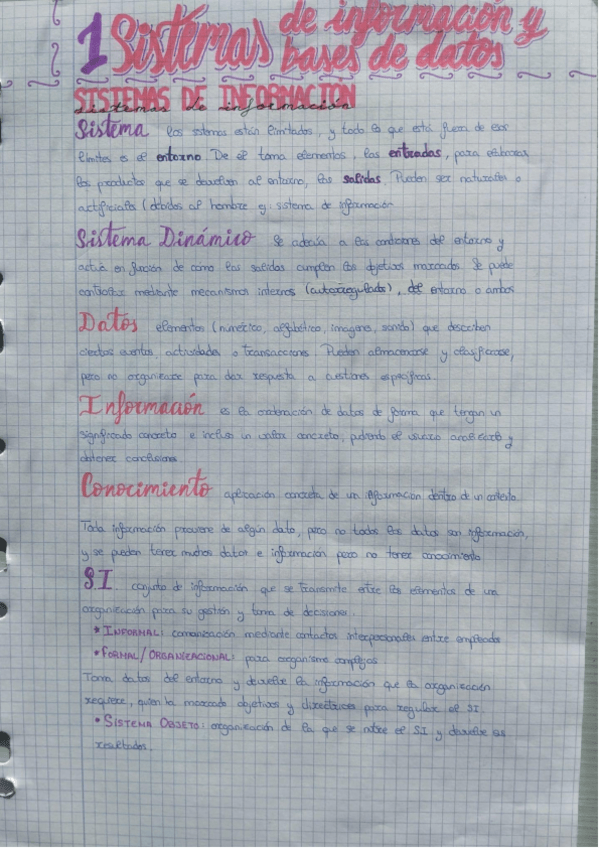 1 Sistemas de información y
bases de datos
SISTEMAS DE INFORMACIÓN
sistemas de información
Sistema los sistemas están limitados, y todo lo que está fuera de esos
límites es el entorno. De el toma elementos, las entradas, para elaborar
los productos que se devuelven al entorno, las salidas. Pueden ser naturales o
artificiales (debidos al hombre ej: sistema de información
Sistema Dinámico Se adecúa a las condiciones del entorno y
actúa en función de como las salidas cumplen los objetivos marcados. Se puede
controlar mediante mecanismos internos (autorregulado), del entorno o ambos
Datos elementos (numérico, alfabético, imagenes, sonido) que describen
ciertos eventos, actividades o transacciones. Pueden almacenarse y clasificarse,
pero no organizarse para dar respuesta a cuestiones específicas.
Información es la ordenación de datos de forma que tengan un
significado concreto e incluso un valor concreto, pudiendo el usuario analizarlo y
obtener conclusiones
Conocimiento aplicación concreta de una información dentro de un contexto
Toda información proviene de algún dato, pero no todos los datos son información,
y se pueden tener muchos datos e información pero no tener conocimiento
S.I. conjunto de información que se transmite entre los elementos de una
organización para su gestión y toma de decisiones.
* INFORMAL: comunicación mediante contactos interpersonales entre empleados
* FORMAL/ORGANIZACIONAL: para organismo complejos
Toma datos del entorno y devuelve la información que la organización
requiere, quien la marcado objetivos y directrices para regular el SI
* SISTEMA OBJETO: organización de la que se nutre el S.I y devuelve los
resultados.